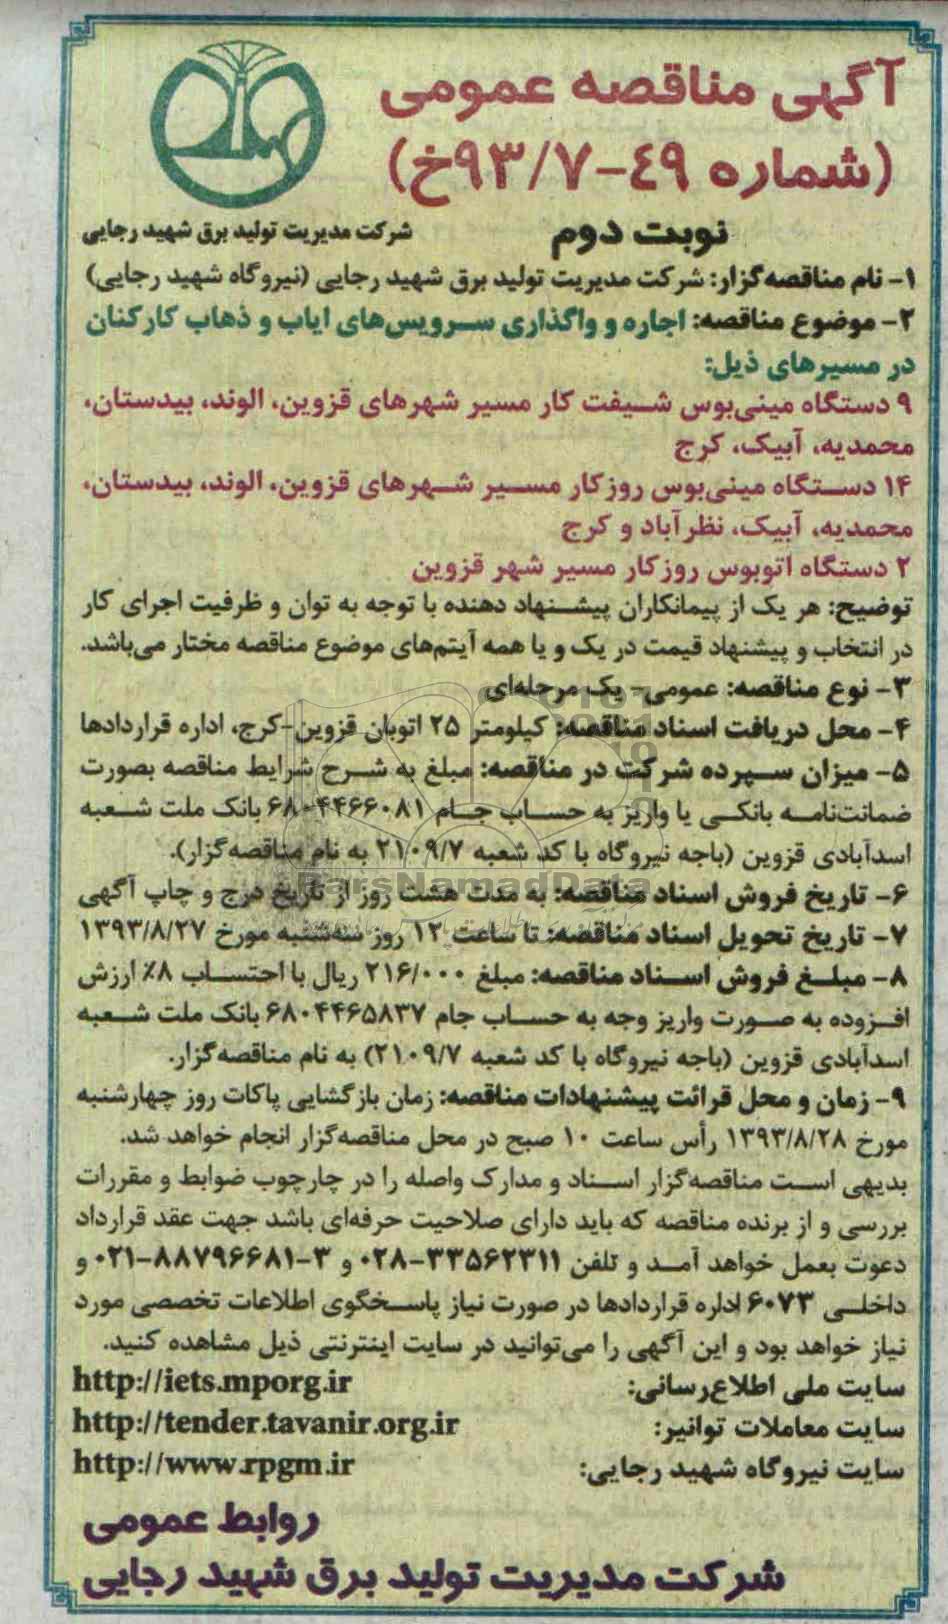 آگهی مناقصه عمومی
(شماره ۴۹-۹۳/۷خ)
نوبت دوم
شرکت مدیریت تولید برق شهید رجایی
۱- نام مناقصه‌گزار: شرکت مدیریت تولید برق شهید رجایی (نیروگاه شهید رجایی)
۲- موضوع مناقصه: اجاره و واگذاری سرویس‌های ایاب و ذهاب کارکنان
در مسیرهای ذیل:
۹ دستگاه مینی‌بوس شیفت کار مسیر شهرهای قزوین، الوند، بیدستان،
محمدیه، آبیک، کرج
۱۴ دستگاه مینی‌بوس روزکار مسیر شهرهای قزوین، الوند، بیدستان،
محمدیه، آبیک، نظرآباد و کرج
۲ دستگاه اتوبوس روزکار مسیر شهر قزوین
توضیح: هر یک از پیمانکاران پیشنهاد دهنده با توجه به توان و ظرفیت اجرای کار
در انتخاب و پیشنهاد قیمت در یک و یا همه آیتم‌های موضوع مناقصه مختار می‌باشد.
۳- نوع مناقصه: عمومی- یک مرحله‌ای
۴- محل دریافت اسناد مناقصه: کیلومتر ۲۵ اتوبان قزوین-کرج، اداره قراردادها
۵- میزان سپرده شرکت در مناقصه: مبلغ به شرح شرایط مناقصه بصورت
ضمانت‌نامه بانکی یا واریز به حساب جام ۶۸۰۴۴۶۶۰۸۱ بانک ملت شعبه
اسدآبادی قزوین (باجه نیروگاه با کد شعبه ۲۱۰۹/۷ به نام مناقصه‌گزار).
ParsNamadData
۶- تاریخ فروش اسناد مناقصه: به مدت هشت روز از تاریخ درج و چاپ آگهی
۷- تاریخ تحویل اسناد مناقصه: تا ساعت ۱۲ روز سه‌شنبه مورخ ۱۳۹۳/۸/۲۷
۸- مبلغ فروش اسناد مناقصه: مبلغ ۲۱۶/۰۰۰ ریال با احتساب ۸٪ ارزش
افزوده به صورت واریز وجه به حساب جام ۶۸۰۴۴۶۵۸۳۷ بانک ملت شعبه
اسدآبادی قزوین (باجه نیروگاه با کد شعبه ۲۱۰۹/۷) به نام مناقصه‌گزار.
۹- زمان و محل قرائت پیشنهادات مناقصه: زمان بازگشایی پاکات روز چهارشنبه
مورخ ۱۳۹۳/۸/۲۸ رأس ساعت ۱۰ صبح در محل مناقصه‌گزار انجام خواهد شد.
بدیهی است مناقصه‌گزار اسناد و مدارک واصله را در چارچوب ضوابط و مقررات
بررسی و از برنده مناقصه که باید دارای صلاحیت حرفه‌ای باشد جهت عقد قرارداد
دعوت بعمل خواهد آمد و تلفن ۳۳۵۶۲۳۱۱-۰۲۸ و ۳-۸۸۷۹۶۶۸۱-۰۲۱ و
داخلی ۶۰۷۳ اداره قراردادها در صورت نیاز پاسخگوی اطلاعات تخصصی مورد
نیاز خواهد بود و این آگهی را می‌توانید در سایت اینترنتی ذیل مشاهده کنید.
سایت ملی اطلاع‌رسانی: http://iets.mporg.ir
سایت معاملات توانیر: http://tender.tavanir.org.ir
سایت نیروگاه شهید رجایی: http://www.rpgm.ir
روابط عمومی
شرکت مدیریت تولید برق شهید رجایی